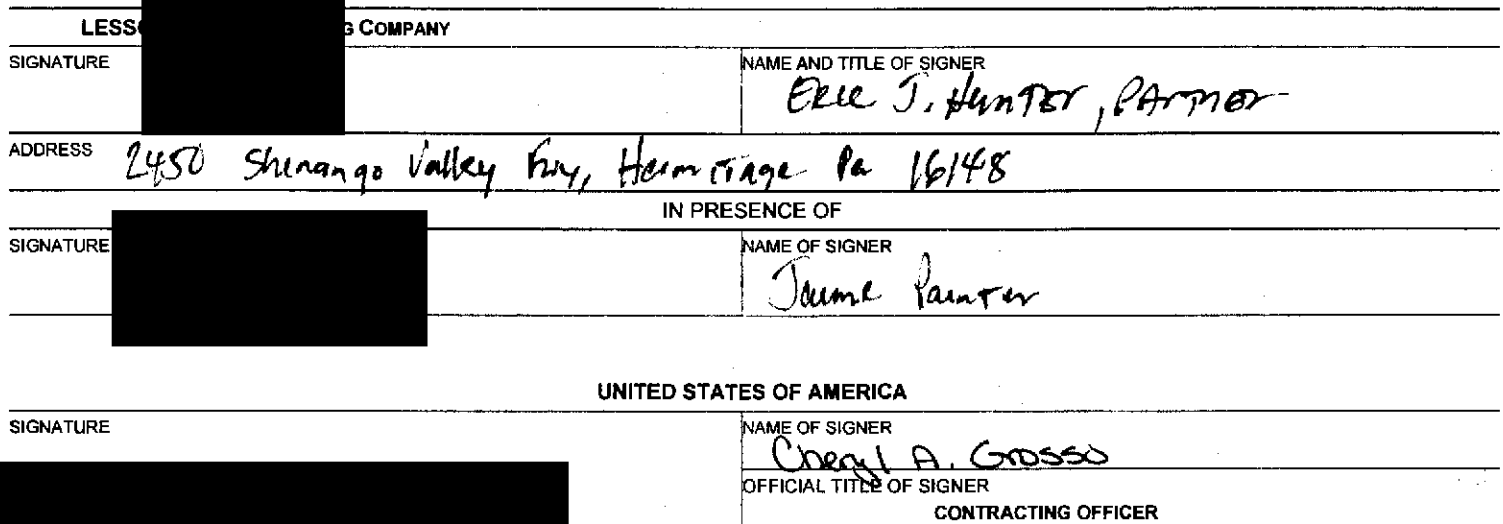 LESSO G COMPANY
SIGNATURE
NAME AND TITLE OF SIGNER
Eric J. Hunter, Partner
ADDRESS 2450 Shenango Valley Fwy, Hermitage Pa 16148
IN PRESENCE OF
SIGNATURE
NAME OF SIGNER
Jaime Painter
UNITED STATES OF AMERICA
SIGNATURE
NAME OF SIGNER
Cheryl A. Grosso
OFFICIAL TITLE OF SIGNER
CONTRACTING OFFICER